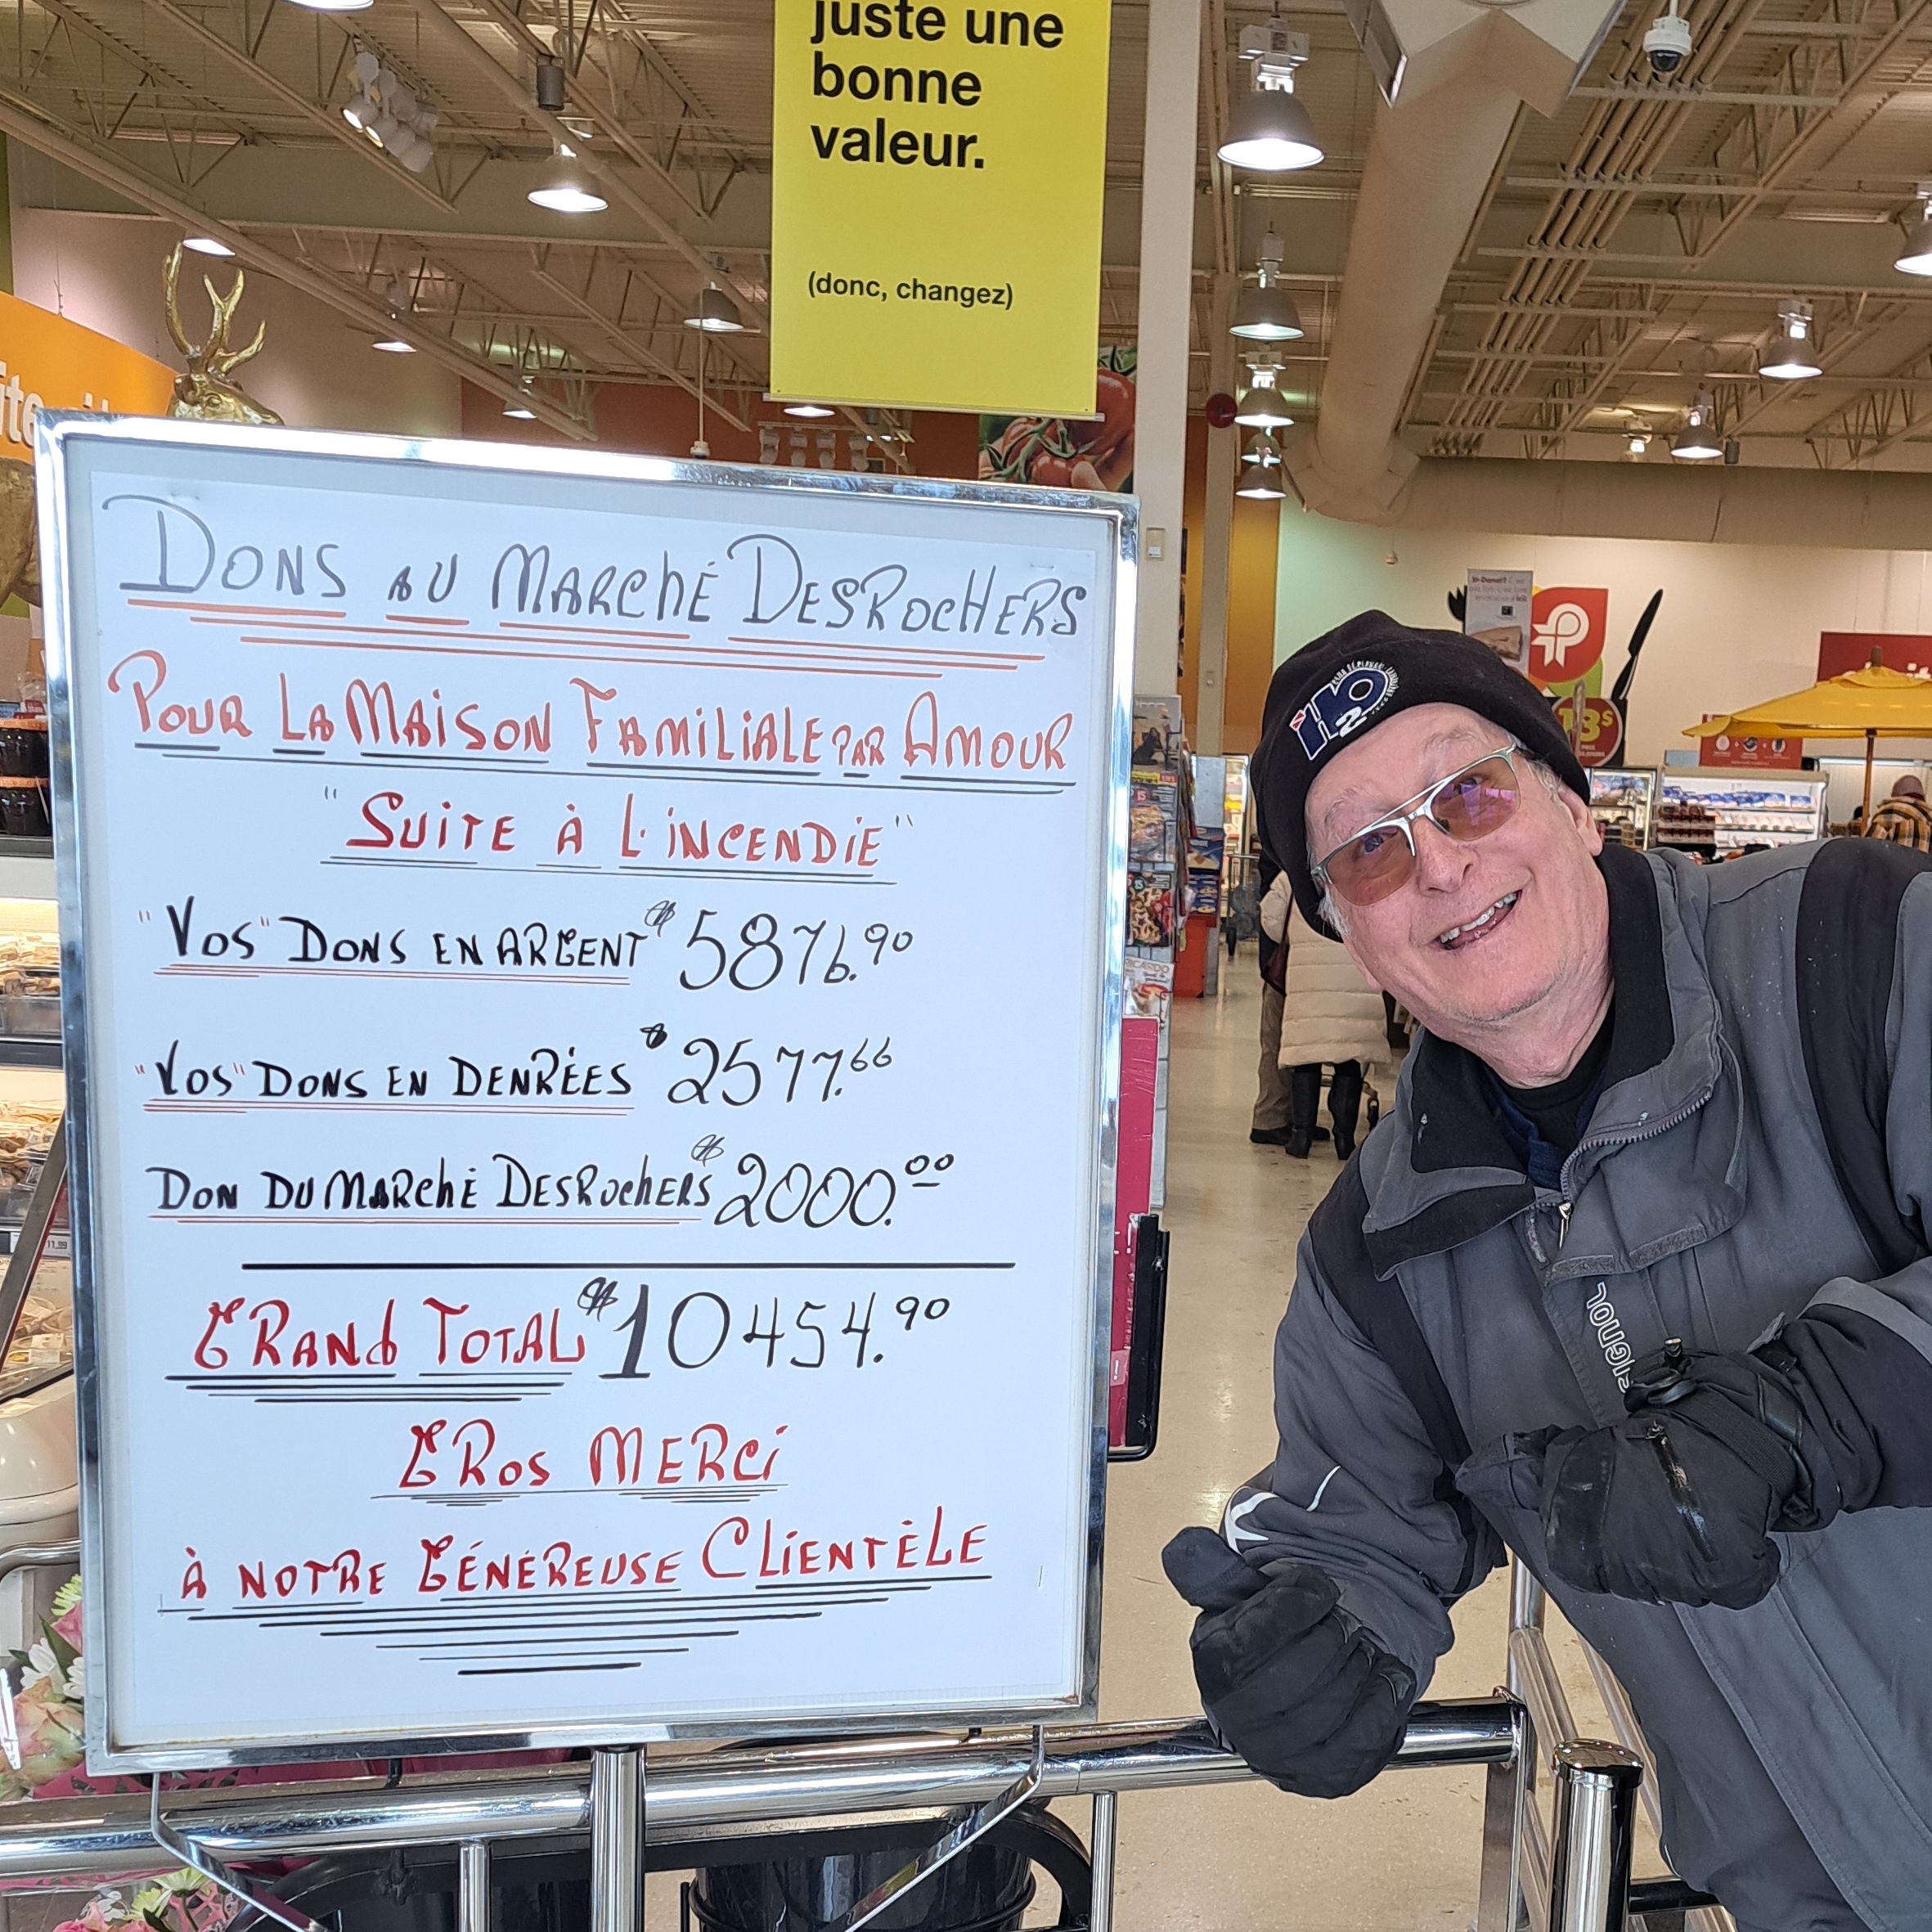 juste une
bonne
valeur.
(donc, changez)
DONS AU MARCHÉ DESROCHERS
POUR LA MAISON FAMILIALE PAR AMOUR
"SUITE À L'INCENDIE"
"VOS" DONS EN ARGENT $ 5876.90
"VOS" DONS EN DENRÉES $ 2577.66
DON DU MARCHÉ DESROCHERS $ 2000.00
GRAND TOTAL $ 10454.90
GROS MERCI
À NOTRE GÉNÉREUSE CLIENTÈLE
H2O
P
13$
RICARDO